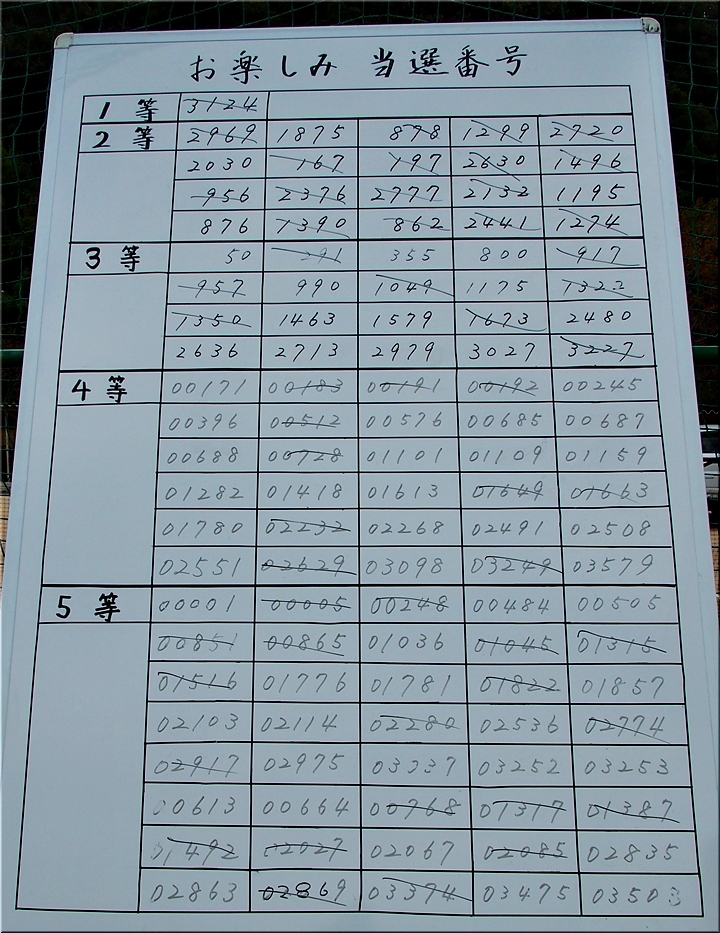 お楽しみ 当選番号
1 等 3124
2 等 2969 1875 878 1299 2720
2030 167 197 2630 1496
956 2376 2777 2132 1195
876 1390 862 2441 1274
3 等 50 291 355 800 917
957 990 1049 1175 1322
1350 1463 1579 1673 2480
2636 2713 2979 3027 3227
4 等 00171 00183 00191 00192 00245
00396 00512 00576 00685 00687
00688 00728 01101 01109 01159
01282 01418 01613 01649 01663
01780 02232 02268 02491 02508
02551 02629 03098 03249 03579
5 等 00001 00005 00248 00484 00505
00851 00865 01036 01045 01315
01516 01776 01781 01822 01857
02103 02114 02280 02536 02774
02917 02975 03337 03252 03253
00613 00664 00768 01317 01387
01492 02027 02067 02085 02835
02863 02869 03374 03475 03503